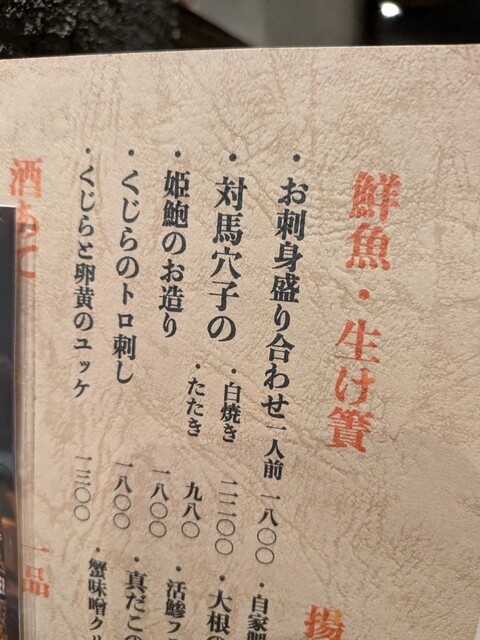 鮮魚・生け簀
・お刺身盛り合わせ 一人前 一八〇〇
・対馬穴子の
・白焼き 一二〇〇
・たたき 九八〇
・姫鮑のお造り 一八〇〇
・くじらのトロ刺し 一八〇〇
・くじらと卵黄のユッケ 一三〇〇
酒あて
揚
・自家
・大根の
・活鯵フ
・真だこの
・蟹味噌クリ
一品